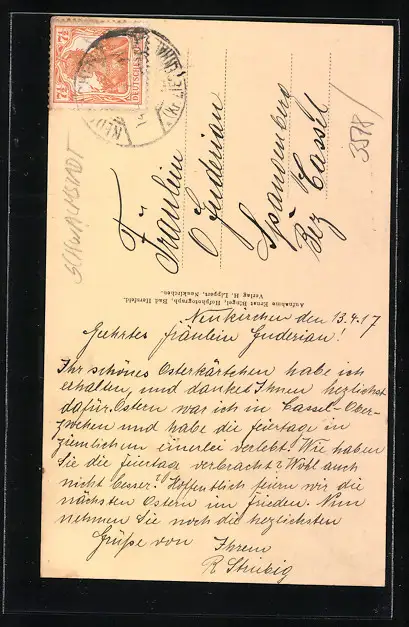 7½
7½
DEUTSCHES REICH
SCHWALMSTADT
3578/
Fräulein
O Guderian
Spangenberg
Bez Cassel
Aufnahme Ernst Bingel, Hofphotograph, Bad Hersfeld.
Verlag H. Lippert, Neukirchen.
Neukirchen den 13.4.17
Geehrtes Fräulein Guderian!
Ihr schönes Osterkärtchen habe ich
erhalten, und danket Ihnen herzlichst
dafür. Ostern war ich in Cassel-Ober-
zwehren und habe die feiertage in
ziemlichem einerlei verlebt! Wie haben
Sie die feiertage verbracht? Wohl auch
nicht besser? Hoffentlich feiern wir die
nächsten Ostern im Frieden. Nun
nehmen Sie noch die herzlichsten
Grüße von Ihrem
R Strubig